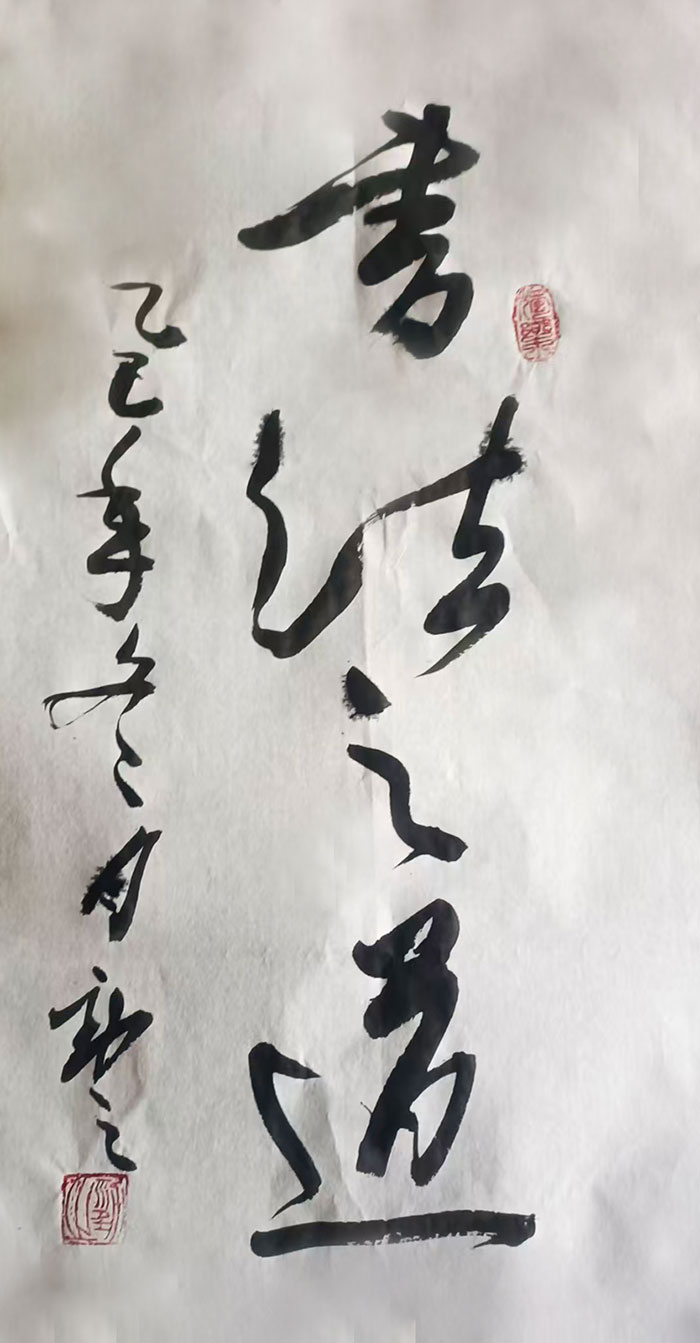 书法之道
乙巳年冬月